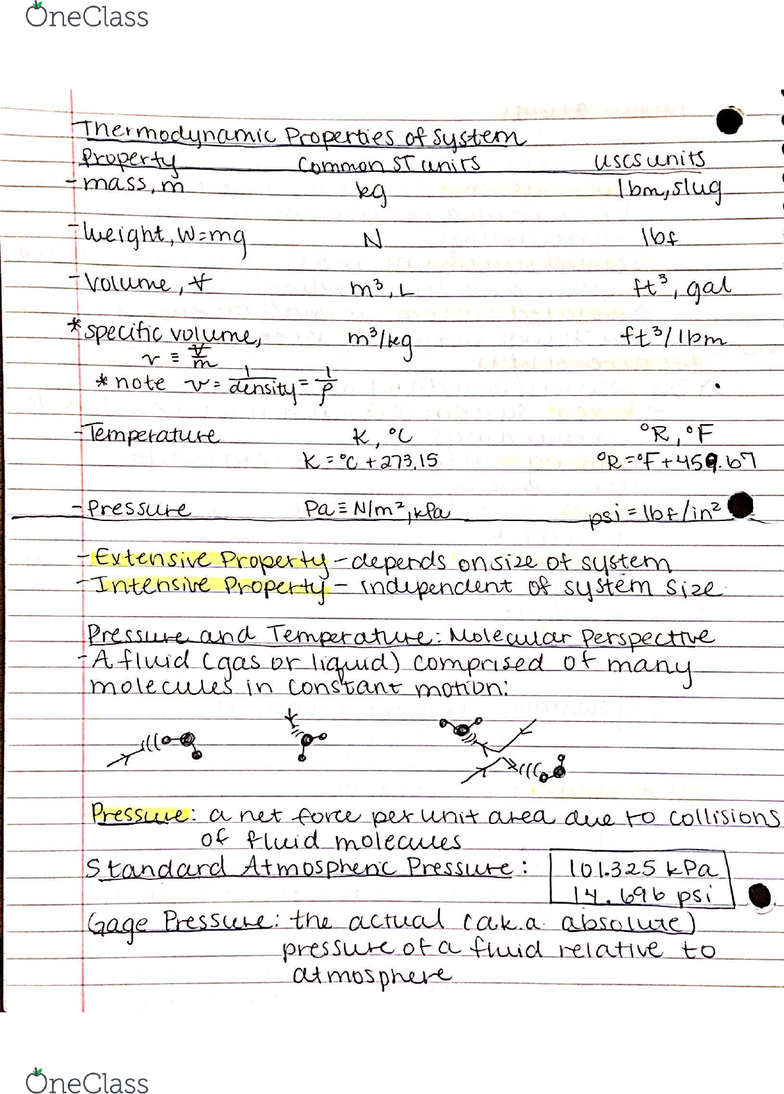 OneClass
Thermodynamic Properties of System
Property common SI units uscs units
- mass, m kg lbm, slug
- Weight, W=mg N lbf
- Volume, V m³, L ft³, gal
* specific volume, m³/kg ft³/lbm
v ≡ V/m
* note v = 1/density = 1/ρ
- Temperature K, °C °R, °F
K = °C + 273.15 °R = °F + 459.67
- Pressure Pa ≡ N/m², kPa psi = lbf/in²
- Extensive Property - depends on size of system
- Intensive Property - independent of system size
Pressure and Temperature: Molecular Perspective
- A fluid (gas or liquid) comprised of many
molecules in constant motion:
Pressure: a net force per unit area due to collisions
of fluid molecules
Standard Atmospheric Pressure: 101.325 kPa
14.696 psi
Gage Pressure: the actual (a.k.a. absolute)
pressure of a fluid relative to
atmosphere
OneClass